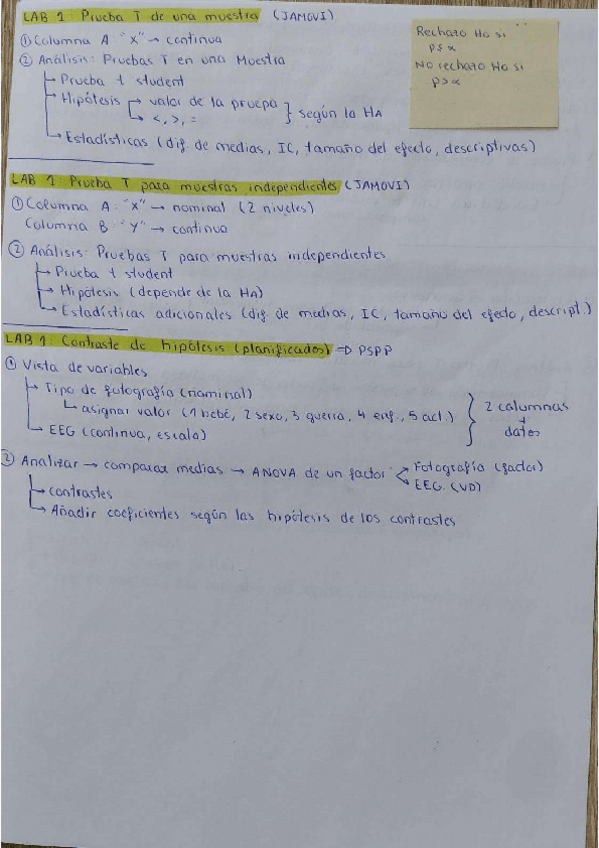 LAB 1: Prueba T de una muestra (JAMOVI)
① Columna A: "X" → continua
② Análisis: Pruebas T en una Muestra
→ Prueba t student
→ Hipótesis → valor de la prueba } según la HA
→ <, >, =
→ Estadísticas (dif. de medias, IC, tamaño del efecto, descriptivas)
Rechazo Ho si
p≤α
NO rechazo Ho si
p>α
LAB 1: Prueba T para muestras independientes (JAMOVI)
① Columna A: "X" → nominal (2 niveles)
Columna B: "Y" → continua
② Análisis: Pruebas T para muestras independientes
→ Prueba t student
→ Hipótesis (depende de la HA)
→ Estadísticas adicionales (dif. de medias, IC, tamaño del efecto, descript.)
LAB 1: Contraste de hipótesis (planificados) => PSPP
① Vista de variables
→ Tipo de fotografía (nominal)
→ asignar valor (1 bebé, 2 sexo, 3 guerra, 4 enf., 5 act.)
→ EEG (continua, escala)
} 2 columnas
+
datos
② Analizar → comparar medias → ANOVA de un factor < Fotografía (factor)
EEG. (VD)
→ contrastes
→ Añadir coeficientes según las hipótesis de los contrastes